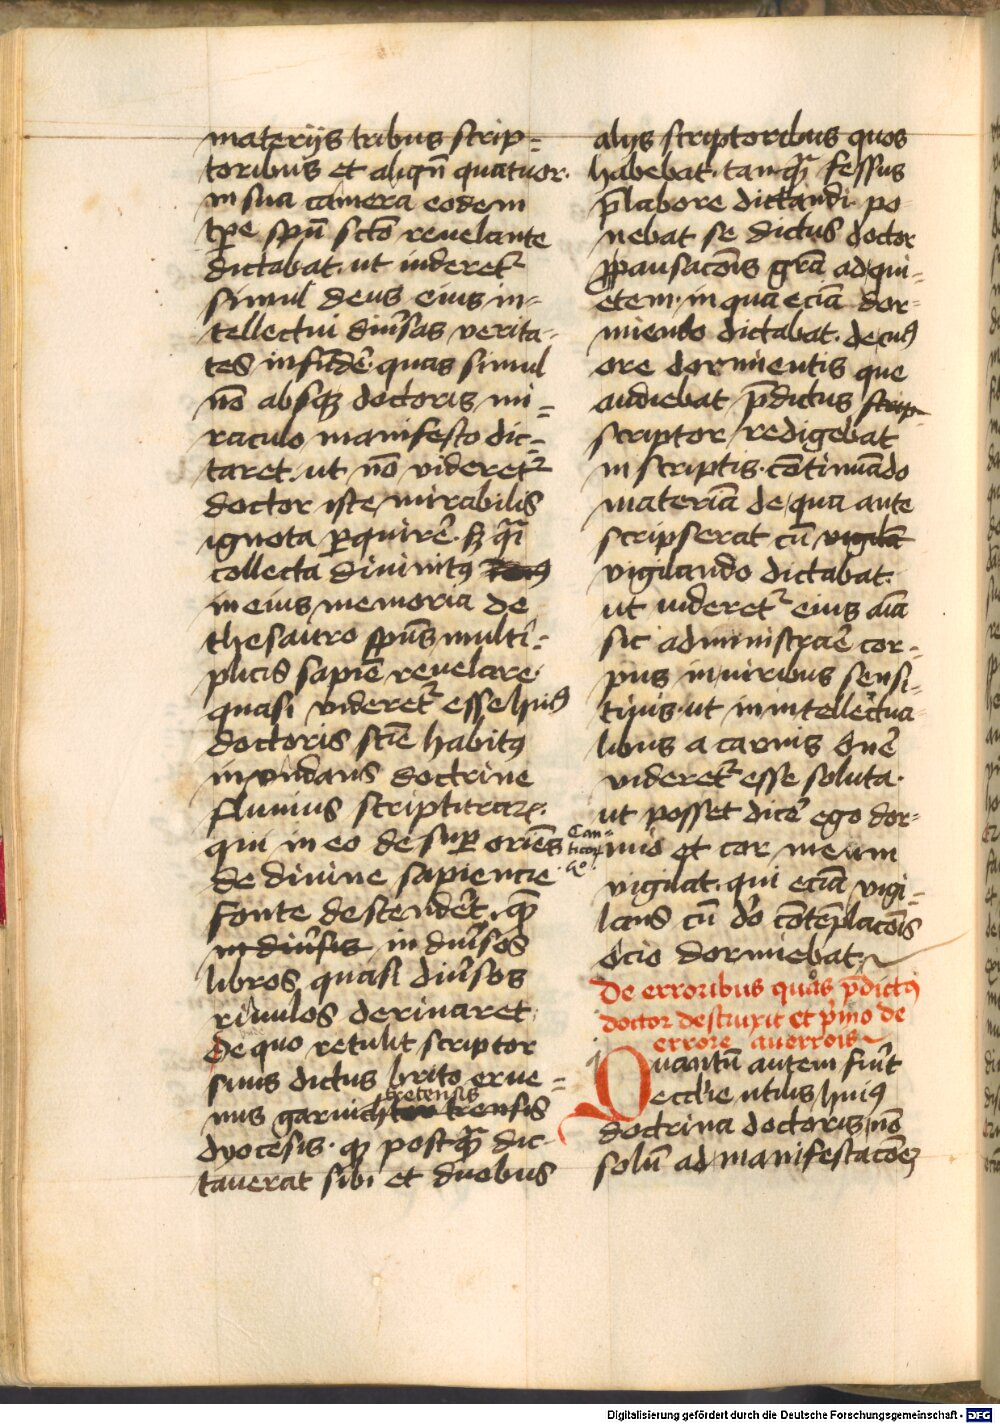 materijs tribus scrip=
toribus et aliqn̄ quatuor.
in sua camera eodem
tp̄e spū scto revelante
dictabat. ut videret᷑
simul deus eius in=
tellectui diūsas verita=
tes infūde᷑. quas simul
nō absqȝ doctoris mi=
raculo manifesto dic=
taret. ut nō videret᷑
doctor iste mirabilis
ignota ꝑquire᷑. sȝ qͣi
collecta divinitꝰ
in eius memoria de
thesauro spūs multi=
plicis sapiē revelare.
quasi videret᷑ esse huiꝰ
doctoris scīe habitꝰ
inundans doctrine
fluvius scripturaꝝ.
qui in eo desuꝑ oriēs
de divine sapiencie
fonte descendēt. quē
in diūsis in diūsos
libros quasi diūsos
rivulos derivaret.
De quo retulit scriptor
suus dictus brito erve=
nus garuich trensis
cretensis
dyocesis. qȝ postqͣ dic-
taverat sibi et duobus
alijs scriptoribus quos
habebat. tanqͣ fessus
p̄ labore dictandi. po
nebat se dictus doctor
ꝓ pausacōis grā ad qui=
etem. in qua eciā dor=
miendo dictabat. de cuiꝰ
ore dormientis que
audiebat p̄dictus scrip-
scriptor redigebat
in scriptis. cōtinuādo
materiā de qua ante
scripserat cū vigilā
vigilando dictabat.
ut videret᷑ eius aīa
sic administraē cor=
pus in viribus sensi-
tivis. ut in intellectua
libus a carnis onē
videret᷑ esse soluta.
ut posset dicē ego dor=
Can=
ticoꝝ
5º
mio et cor meum
vigilat. qui eciā vigi=
lans cū dō cōtēplacōis
ocio dormiebat
De erroribus quos p̄dictꝰ
doctor destruxit et pͥmo de
errore averrois
Quantū autem fuīt
ecclie utilis huiꝰ
doctrina doctoris, nō
solū ad manifestacōeȝ
Digitalisierung gefördert durch die Deutsche Forschungsgemeinschaft - DFG